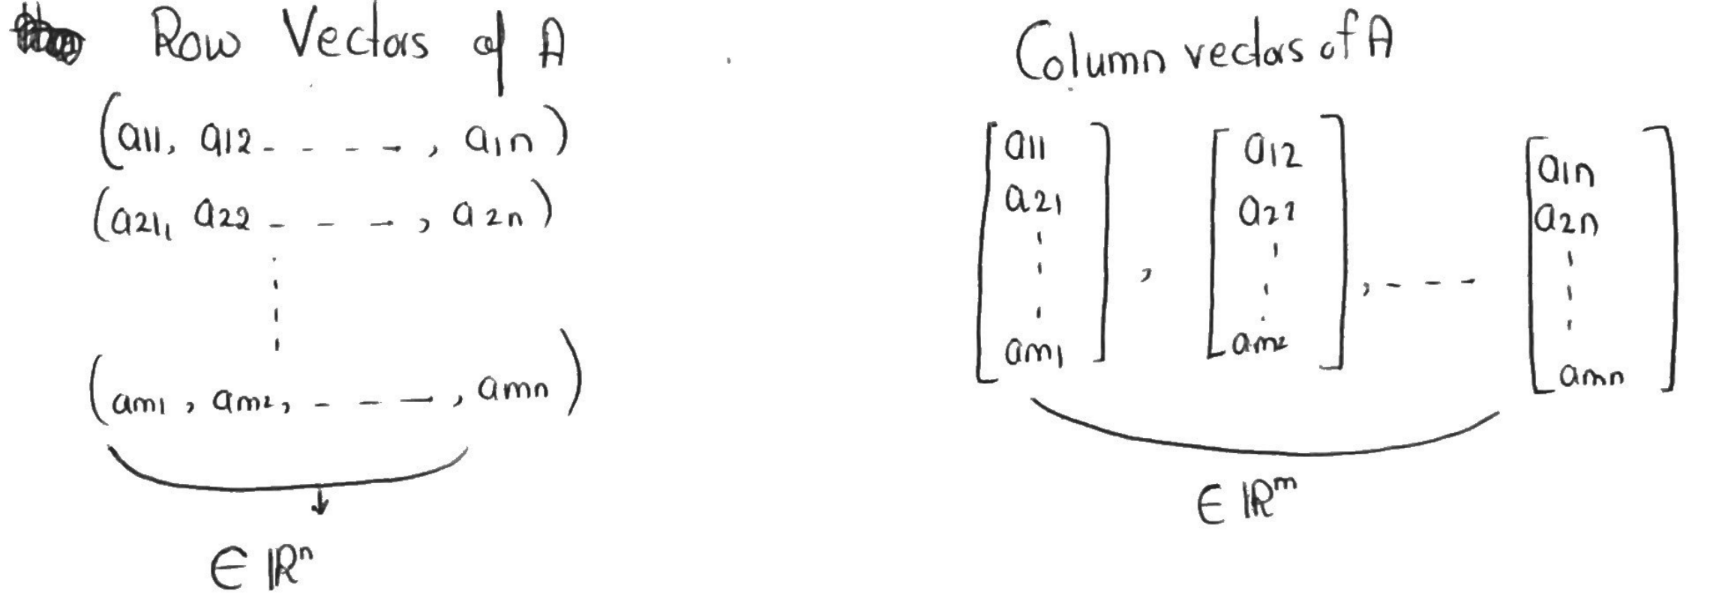 Row Vectors of A
(a11, a12 - - - - , a1n)
(a21, a22 - - - , a2n)
(am1, am2, - - - , amn)
∈ ℝⁿ
Column vectors of A
[a11 a21 ⋮ am1] , [a12 a22 ⋮ am2] , - - - [a1n a2n ⋮ amn]
∈ ℝᵐ